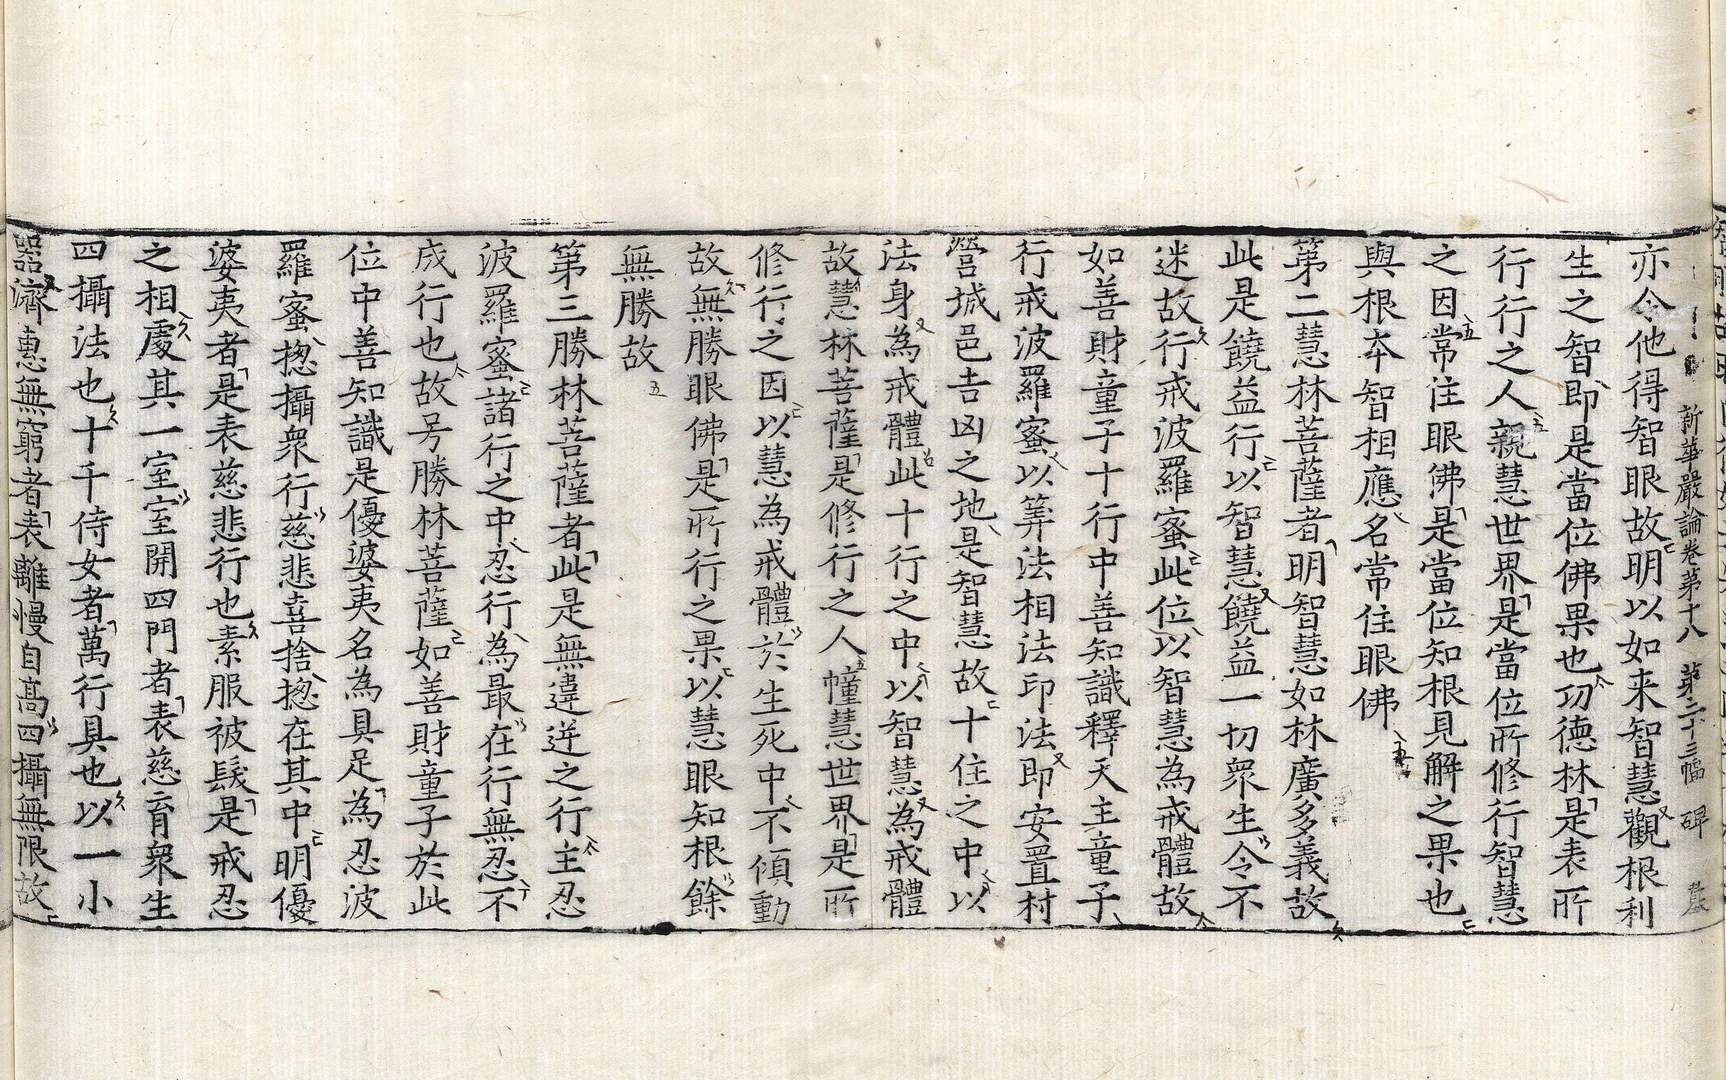 新華嚴論卷第十八 第二十三幅 碑 農
亦令他得智眼故明以如来智慧觀根利
生之智即是當位佛果也㓛德林是表所
行行之人親慧世界是當位所修行智慧
之因常住眼佛是當位知根見解之果也
與根本智相應名常住眼佛
第二慧林菩薩者明智慧如林廣多義故
此是饒益行以智慧饒益一切衆生令不
迷故行戒波羅蜜此位以智慧為戒體故
如善財童子十行中善知識釋天主童子
行戒波羅蜜以筭法相法印法即安置村
營城邑吉凶之地是智慧故十住之中以
法身為戒體此十行之中以智慧為戒體
故慧林菩薩是修行之人幢慧世界是所
修行之因以慧為戒體於生死中不傾動
故無勝眼佛是所行之果以慧眼知根餘
無勝故
第三勝林菩薩者此是無違逆之行主忍
波羅蜜諸行之中忍行為最在行無忍不
成行也故号勝林菩薩如善財童子於此
位中善知識是優婆夷名為具足為忍波
羅蜜揔攝衆行慈悲喜捨揔在其中明優
婆夷者是表慈悲行也素服被髮是戒忍
之相處其一室室開四門者表慈育衆生
四攝法也十千侍女者萬行具也以一小
器濟惠無窮者表離慢自高四攝無限故